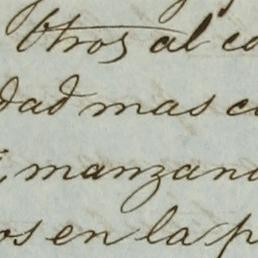 Otros al co
dad mas c
manzana
os en la p